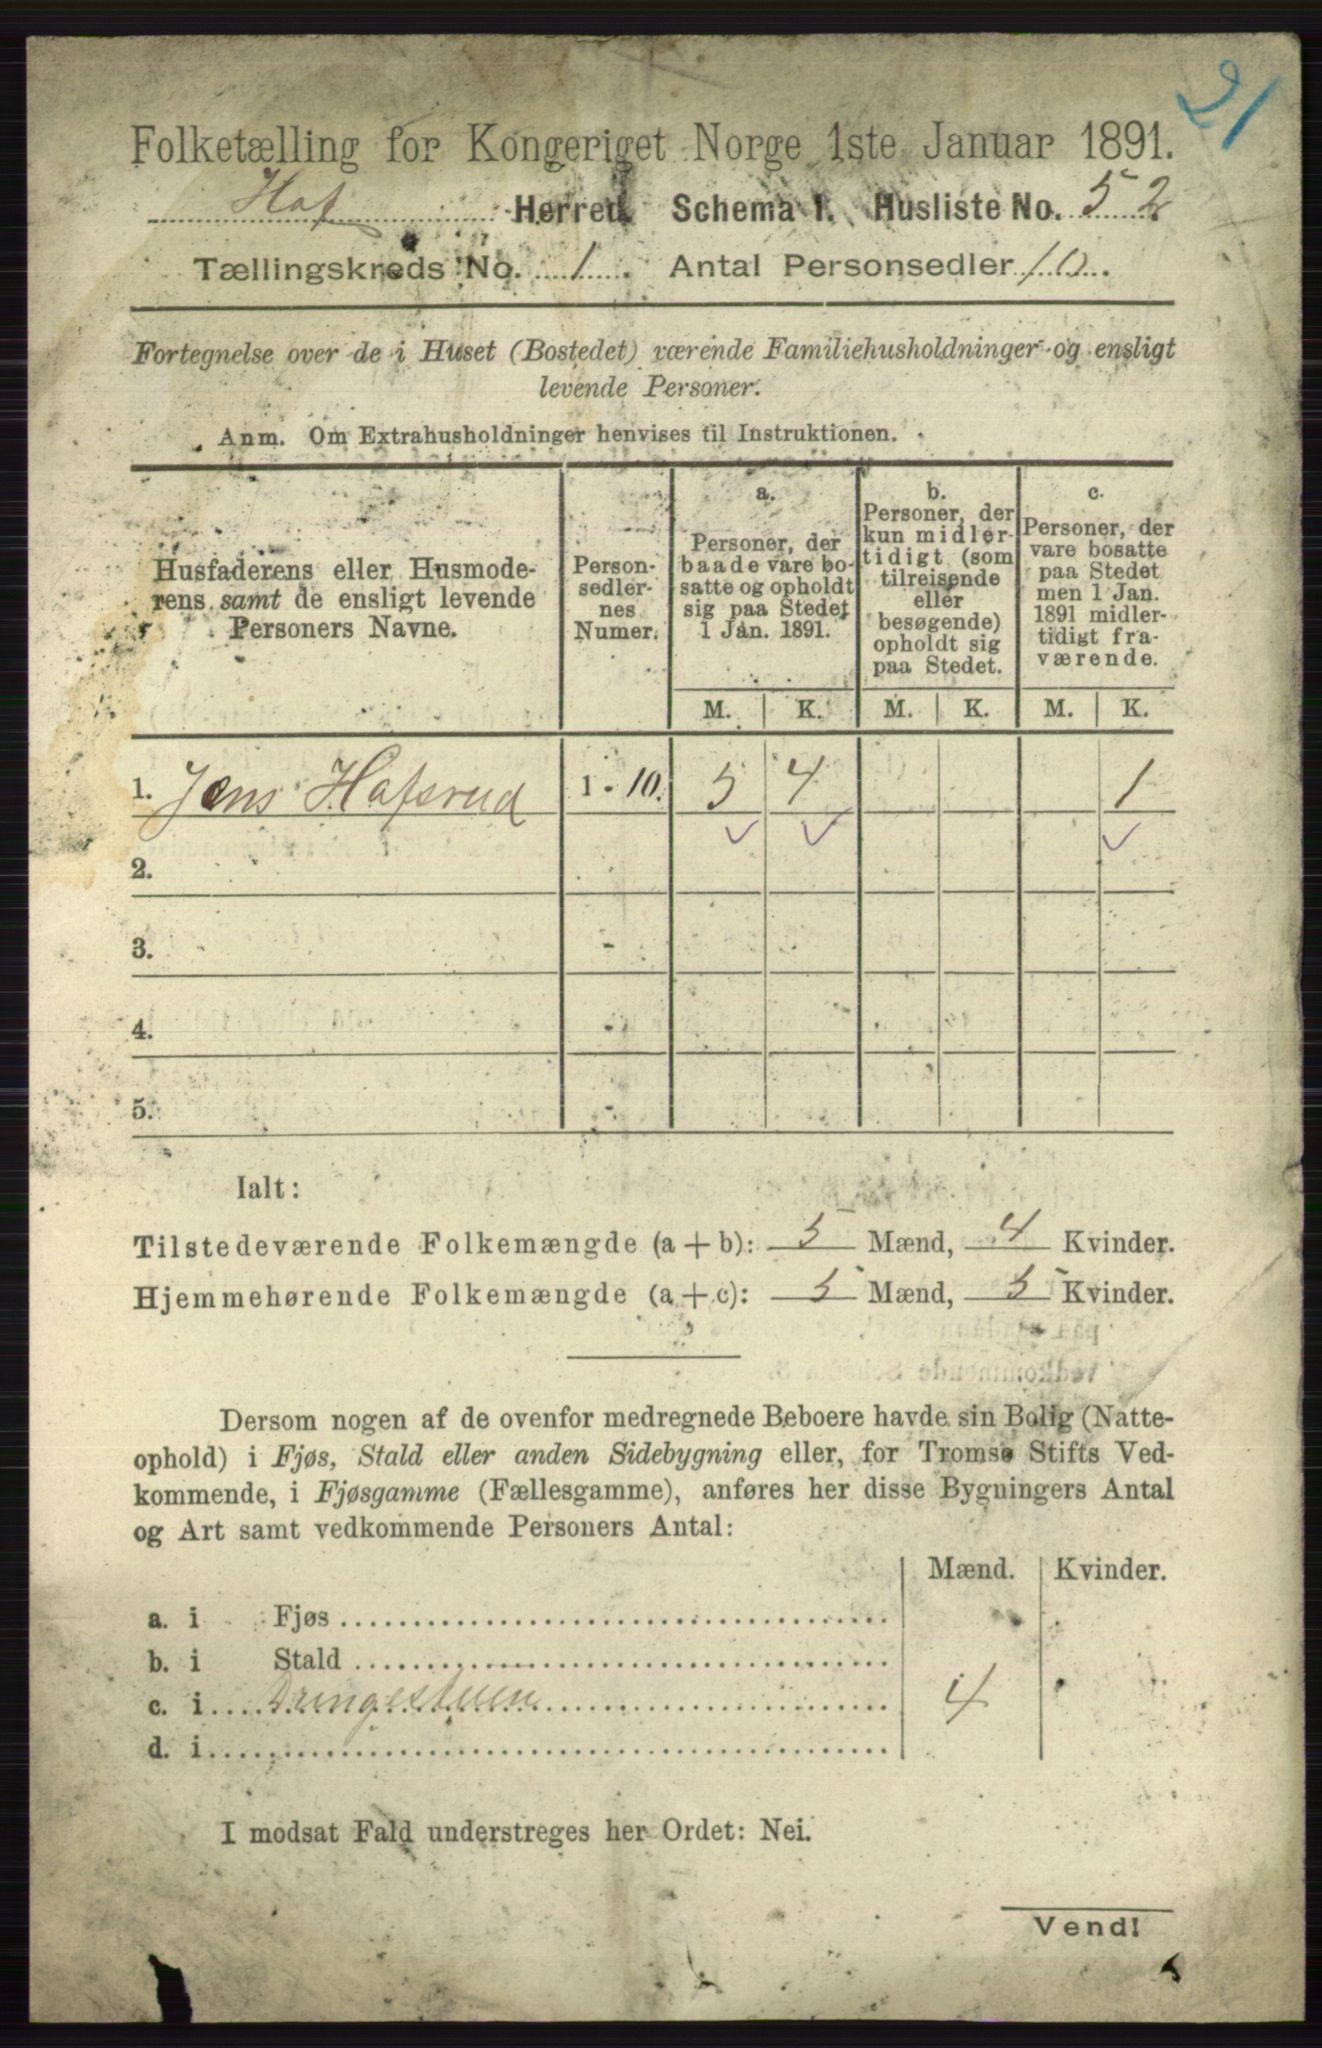 21
Folketælling for Kongeriget Norge 1ste Januar 1891.
Hof Herred. Schema 1. Husliste No. 52
Tællingskreds No. 1. Antal Personsedler 10.
Fortegnelse over de i Huset (Bostedet) værende Familiehusholdninger og ensligt
levende Personer.
Anm. Om Extrahusholdninger henvises til Instruktionen.
Husfaderens eller Husmode-
rens samt de ensligt levende
Personers Navne.
Person-
sedler-
nes
Numer.
a.
Personer, der
baade vare bo-
satte og opholdt
sig paa Stedet
1 Jan. 1891.
b.
Personer, der
kun midler-
tidigt (som
tilreisende
eller
besøgende)
opholdt sig
paa Stedet.
c.
Personer, der
vare bosatte
paa Stedet
men 1 Jan.
1891 midler-
tidigt fra-
værende.
M. K. M. K. M. K.
1. Jens Hafsrud 1 - 10. 5 4 1
2.
3. -
4. -
5. -
Ialt:
Tilstedeværende Folkemængde (a + b): 5 Mænd, 4 Kvinder.
Hjemmehørende Folkemængde (a + c): 5 Mænd, 5 Kvinder.
Dersom nogen af de ovenfor medregnede Beboere havde sin Bolig (Natte-
ophold) i Fjøs, Stald eller anden Sidebygning eller, for Tromsø Stifts Ved-
kommende, i Fjøsgamme (Fællesgamme), anføres her disse Bygningers Antal
og Art samt vedkommende Personers Antal:
Mænd. Kvinder.
a. i Fjøs
b. i Stald
c. i Drengestuen 4
d. i
I modsat Fald understreges her Ordet: Nei.
Vend!